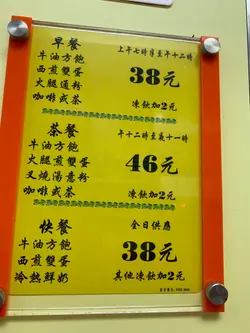 早餐
上午七時半至午十二時
牛油方飽
西煎雙蛋
火腿通粉
咖啡或茶
38元
凍飲加2元
茶餐
午十二時至夜十一時
牛油方飽
火腿煎雙蛋
叉燒湯意粉
咖啡或茶
46元
凍飲加2元
快餐
全日供應
牛油方飽
西煎雙蛋
冷熱鮮奶
38元
其他凍飲加2元